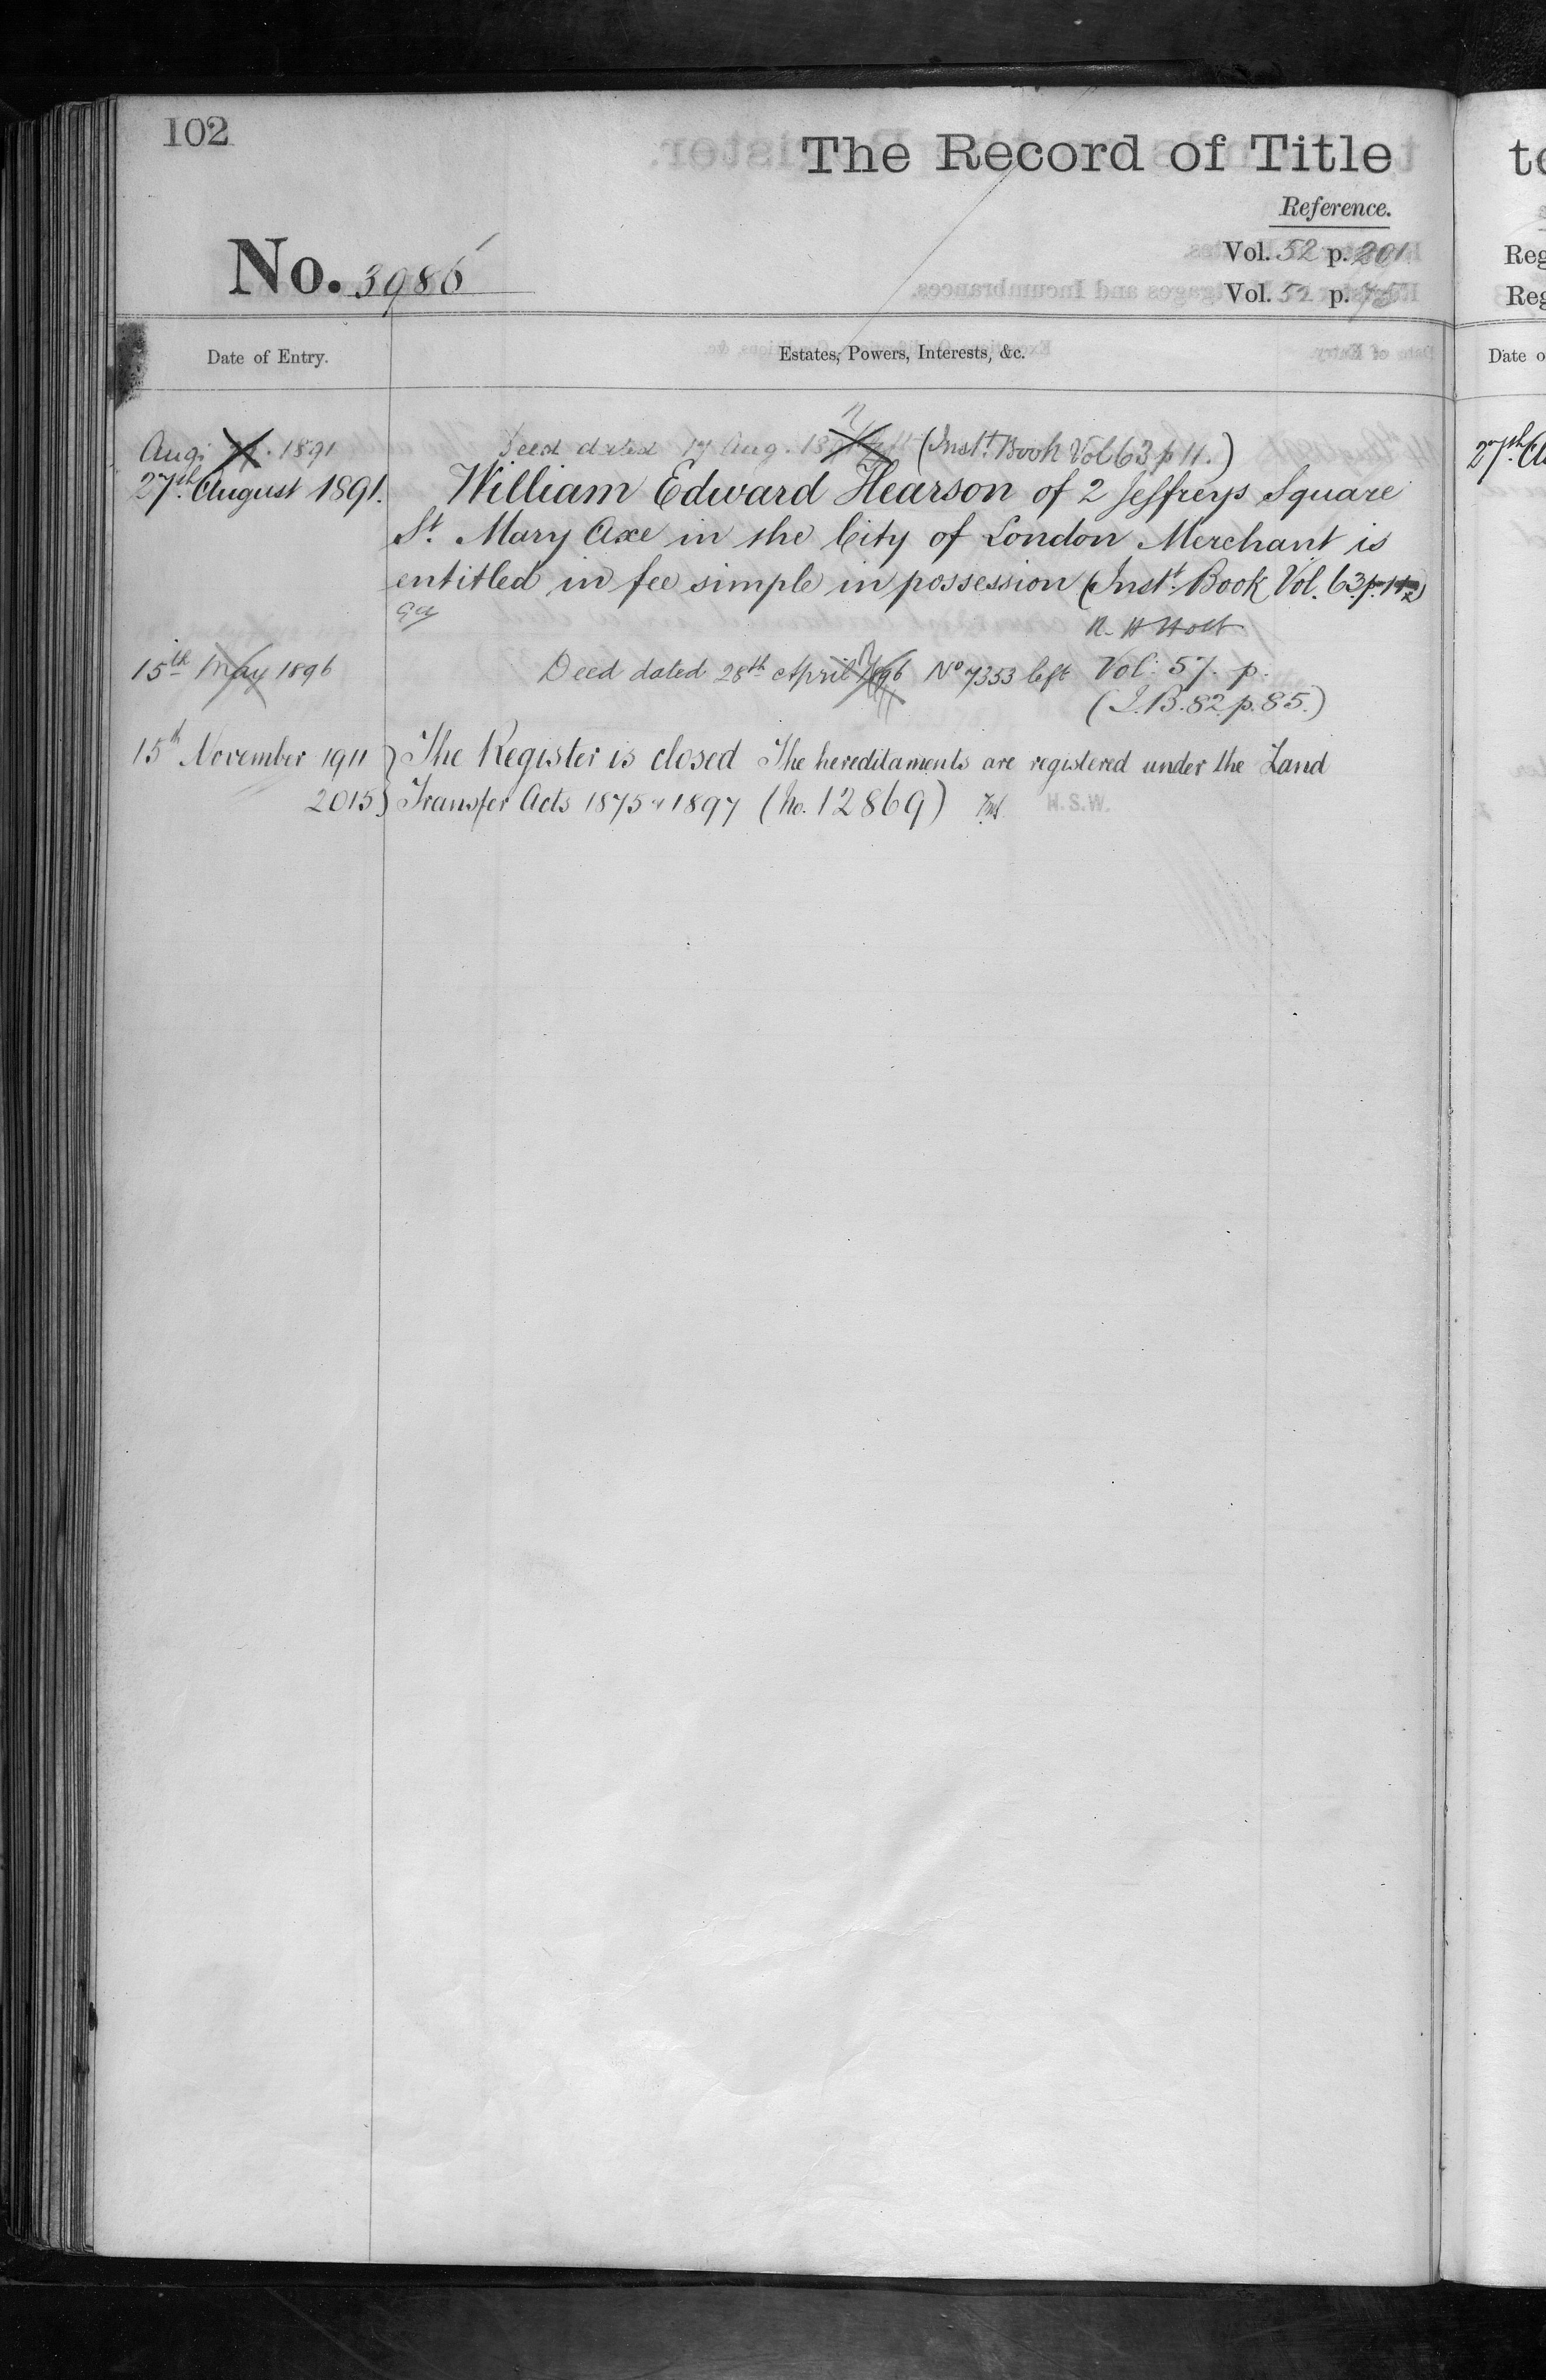 102
The Record of Title
Reference.
No. 3986
Vol. 52 p. 201.
Vol. 52 p. 75
Date of Entry.
Estates, Powers, Interests, &c.
Aug: 1891
Deed dated 17 Aug. 1891 left (Instt. Book Vol 63 p 11.)
27th August 1891.
William Edward Hearson of 2 Jeffreys Square
St. Mary Axe in the City of London Merchant is
entitled in fee simple in possession (Instt. Book Vol. 63. p. 11)
R. H. Holt
15th May 1896
Deed dated 28th April 1896 No 7353 left Vol: 57. p.
(I.B. 82 p. 85.)
15th November 1911
2015
The Register is closed The hereditaments are registered under the Land
Transfer Acts 1875 & 1897 (No. 12869) H.S.W.
to
Reg
Reg
Date o
27th. Au